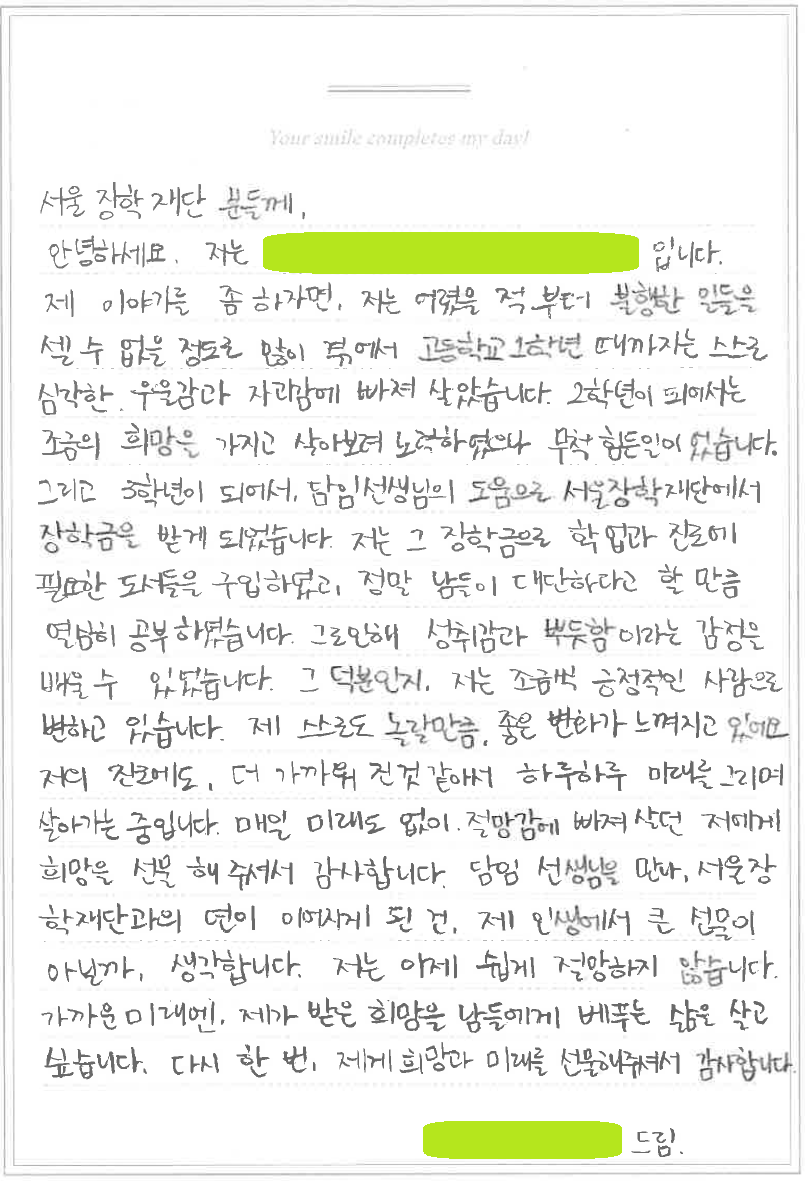 Your smile completes my day!
서울 장학 재단 분들께,
안녕하세요. 저는 입니다.
제 이야기를 좀 하자면, 저는 어렸을 적 부터 불행한 일들을
셀 수 없을 정도로 많이 겪어서 고등학교 1학년 때까지는 스스로
심각한 우울감과 자괴감에 빠져 살았습니다. 2학년이 되어서는
조금의 희망을 가지고 살아보려 노력하였으나 무척 힘든일이 었습니다.
그리고 3학년이 되어서, 담임선생님의 도움으로 서울장학재단에서
장학금을 받게 되었습니다. 저는 그 장학금으로 학업과 진로에
필요한 도서들을 구입하였고, 정말 남들이 대단하다고 할 만큼
열심히 공부하였습니다. 그로인해 성취감과 뿌듯함이라는 감정을
배울 수 있었습니다. 그 덕분인지, 저는 조금씩 긍정적인 사람으로
변하고 있습니다. 제 스스로도 놀랄만큼, 좋은 변화가 느껴지고 있어요
저의 진로에도, 더 가까워 진것 같아서 하루하루 미래를 그리며
살아가는 중입니다. 매일 미래도 없이 절망감에 빠져 살던 저에게
희망을 선물 해 주셔서 감사합니다. 담임 선생님을 만나, 서울장
학재단과의 연이 이어지게 된 건, 제 인생에서 큰 선물이
아닐까, 생각합니다. 저는 이제 쉽게 절망하지 않습니다.
가까운 미래엔, 제가 받은 희망을 남들에게 베푸는 삶을 살고
싶습니다. 다시 한 번, 제게 희망과 미래를 선물해주셔서 감사합니다.
드림.